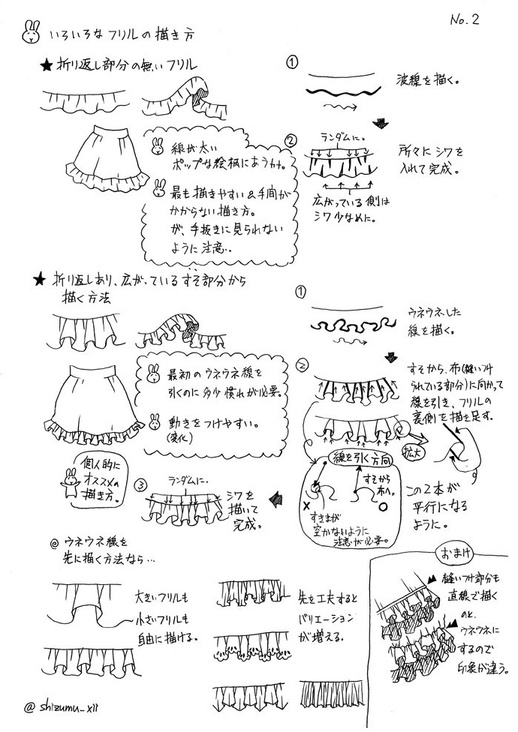 No.2
いろいろなフリルの描き方
★ 折り返し部分の無いフリル
①
波線を描く。
線が太い
ポップな絵柄にあうかも。
最も描きやすい&手間が
かからない描き方。
が、手抜きに見られない
ように注意‥
②
ランダムに。
所々にシワを
入れて完成。
広がっている側は
シワ少なめに。
★ 折り返しあり、広がっているすそ部分から
描く方法
①
ウネウネした
線を描く。
最初のウネウネ線を
引くのに多少慣れが必要。
動きをつけやすい。
(変化)
②
すそから、布(縫いつけ
られている部分)に向かって
線を引き、フリルの
裏側を描き足す。
拡大
線を引く方向
すそから
布へ。
×
○
すきまが
空かないように
注意が必要。
この2本が
平行になる
ように。
個人的に
オススメの
描き方。
③
ランダムに。
シワを
描いて
完成。
@ ウネウネ線を
先に描く方法なら…
大きいフリルも
小さいフリルも
自由に描ける。
先を工夫すると
バリエーション
が増える。
おまけ
縫いつけ部分も
直線で描く
のと、
ウネウネに
するので
印象が違う。
@shizumu_xii